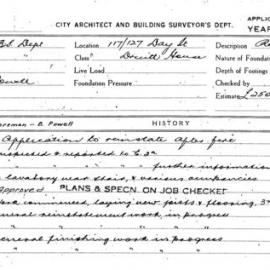 CITY ARCHITECT AND BUILDING SURVEYOR'S DEPT.
APPLIC
YEAR
Dept
Location 117/127 Day St
Description
Class Druitt House
Nature of Foundation
Live Load
Depth of Footings
Powell
Foundation Pressure
Checked by
Estimate £250
Foreman - B. Powell
HISTORY
Application to reinstate after fire
Inspected & reported to
" further information
lavatory near stair, & various occupancies
Approved PLANS & SPECN. ON JOB CHECKED
Work commenced, laying new joists & flooring, 3
General reinstatement work in progress
General finishing work in progress